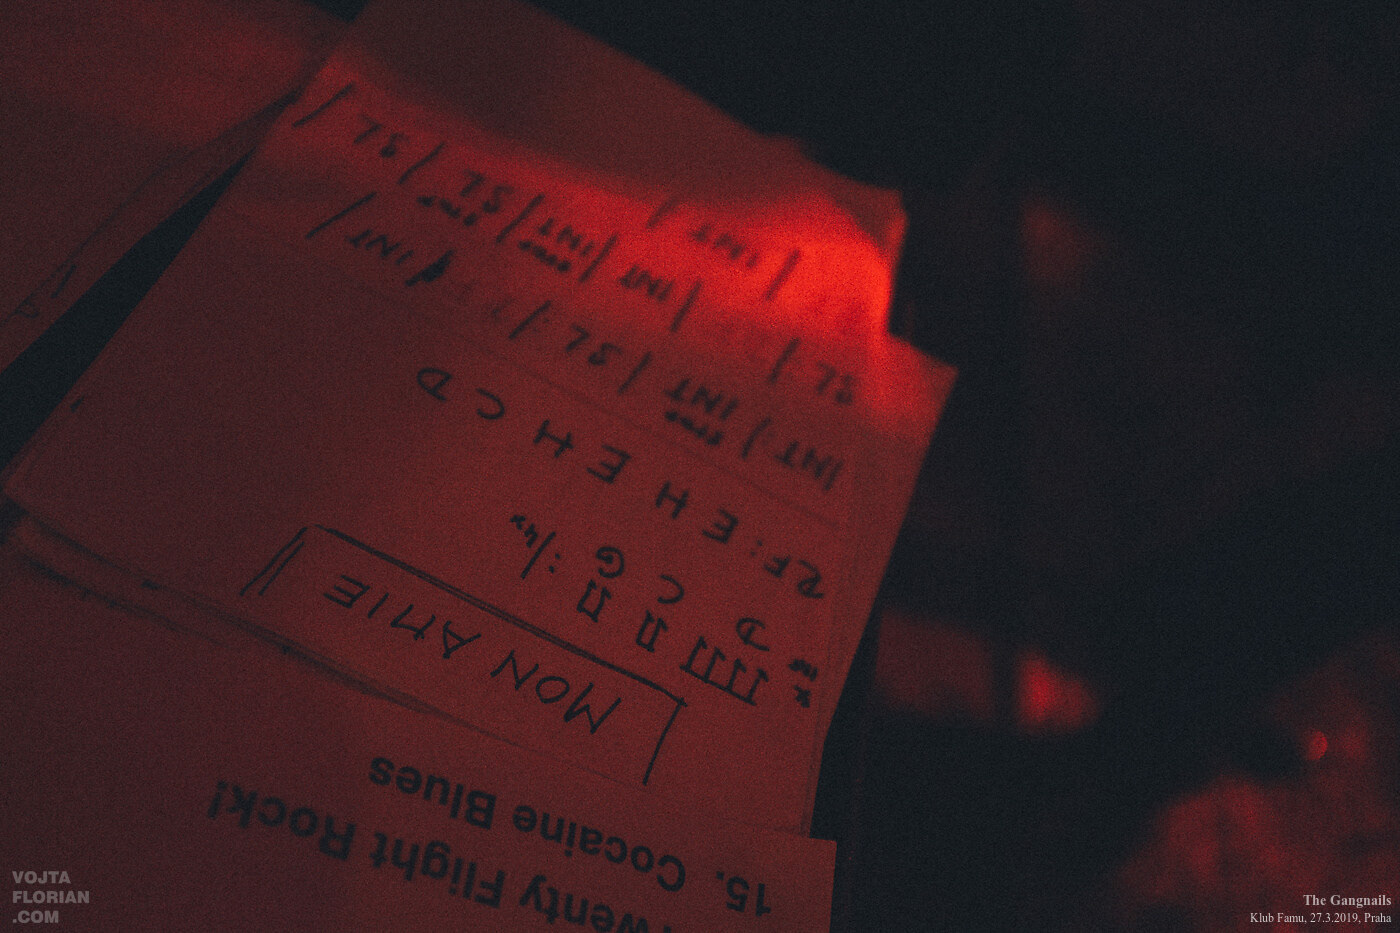 MON AMIE
D C G :/4x
RF: E H E H C D
INT: / INT / SL / / INT /
SL: / INT / INT / SL / SL /
/ INT /
15. Cocaine Blues
wenty Flight Rock!
VOJTA
FLORIAN
.COM
The Gangnails
Klub Famu, 27.3.2019, Praha